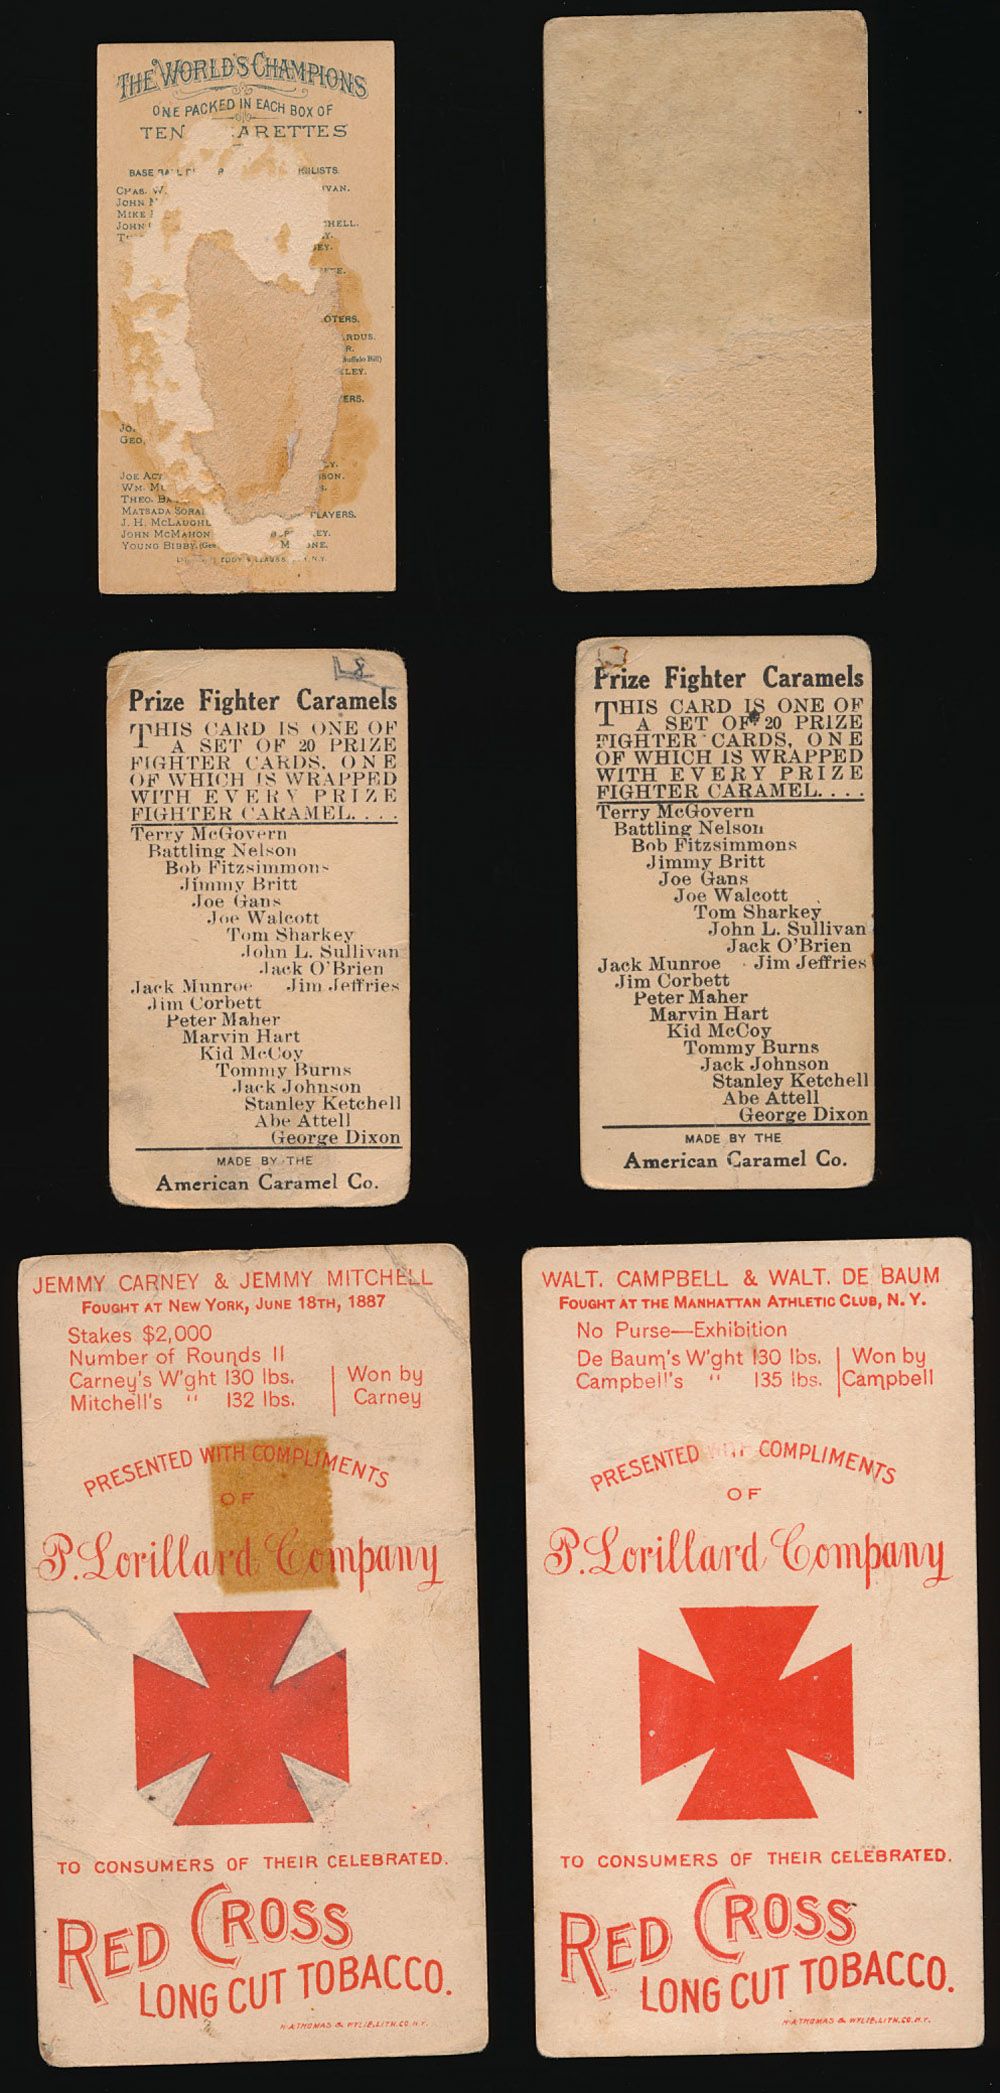 THE WORLD'S CHAMPIONS
ONE PACKED IN EACH BOX OF
TEN ARETTES
BASE BALL
CHAS. W.
JOHN
MIKE
JOHN
IVAN.
CHELL.
OTERS.
RDUS.
R.
(Buffalo Bill)
LEY.
ERS.
JO.
GEO.
JOE ACT
WM. MU
THEO. BA
MATSADA SORA
J. H. McLAUGHL
JOHN McMAHON
YOUNG BIBBY. (Geo
SON.
PLAYERS.
EY.
M NE.
L8
Prize Fighter Caramels
THIS CARD IS ONE OF
A SET OF 20 PRIZE
FIGHTER CARDS, ONE
OF WHICH IS WRAPPED
WITH EVERY PRIZE
FIGHTER CARAMEL....
Terry McGovern
Battling Nelson
Bob Fitzsimmons
Jimmy Britt
Joe Gans
Joe Walcott
Tom Sharkey
John L. Sullivan
Jack O'Brien
Jack Munroe Jim Jeffries
Jim Corbett
Peter Maher
Marvin Hart
Kid McCoy
Tommy Burns
Jack Johnson
Stanley Ketchell
Abe Attell
George Dixon
MADE BY THE
American Caramel Co.
Prize Fighter Caramels
THIS CARD IS ONE OF
A SET OF 20 PRIZE
FIGHTER CARDS, ONE
OF WHICH IS WRAPPED
WITH EVERY PRIZE
FIGHTER CARAMEL....
Terry McGovern
Battling Nelson
Bob Fitzsimmons
Jimmy Britt
Joe Gans
Joe Walcott
Tom Sharkey
John L. Sullivan
Jack O'Brien
Jack Munroe Jim Jeffries
Jim Corbett
Peter Maher
Marvin Hart
Kid McCoy
Tommy Burns
Jack Johnson
Stanley Ketchell
Abe Attell
George Dixon
MADE BY THE
American Caramel Co.
JEMMY CARNEY & JEMMY MITCHELL
FOUGHT AT NEW YORK, JUNE 18TH, 1887
Stakes $2,000
Number of Rounds 11
Carney's W'ght 130 lbs.
Mitchell's " 132 lbs.
Won by
Carney
PRESENTED WITH COMPLIMENTS
OF
P. Lorillard Company
TO CONSUMERS OF THEIR CELEBRATED.
RED CROSS
LONG CUT TOBACCO.
H.A.THOMAS & WYLIE, LITH. CO. N.Y.
WALT. CAMPBELL & WALT. DE BAUM
FOUGHT AT THE MANHATTAN ATHLETIC CLUB, N. Y.
No Purse—Exhibition
De Baum's W'ght 130 lbs.
Campbell's " 135 lbs.
Won by
Campbell
PRESENTED WITH COMPLIMENTS
OF
P. Lorillard Company
TO CONSUMERS OF THEIR CELEBRATED.
RED CROSS
LONG CUT TOBACCO.
H.A.THOMAS & WYLIE, LITH. CO. N.Y.